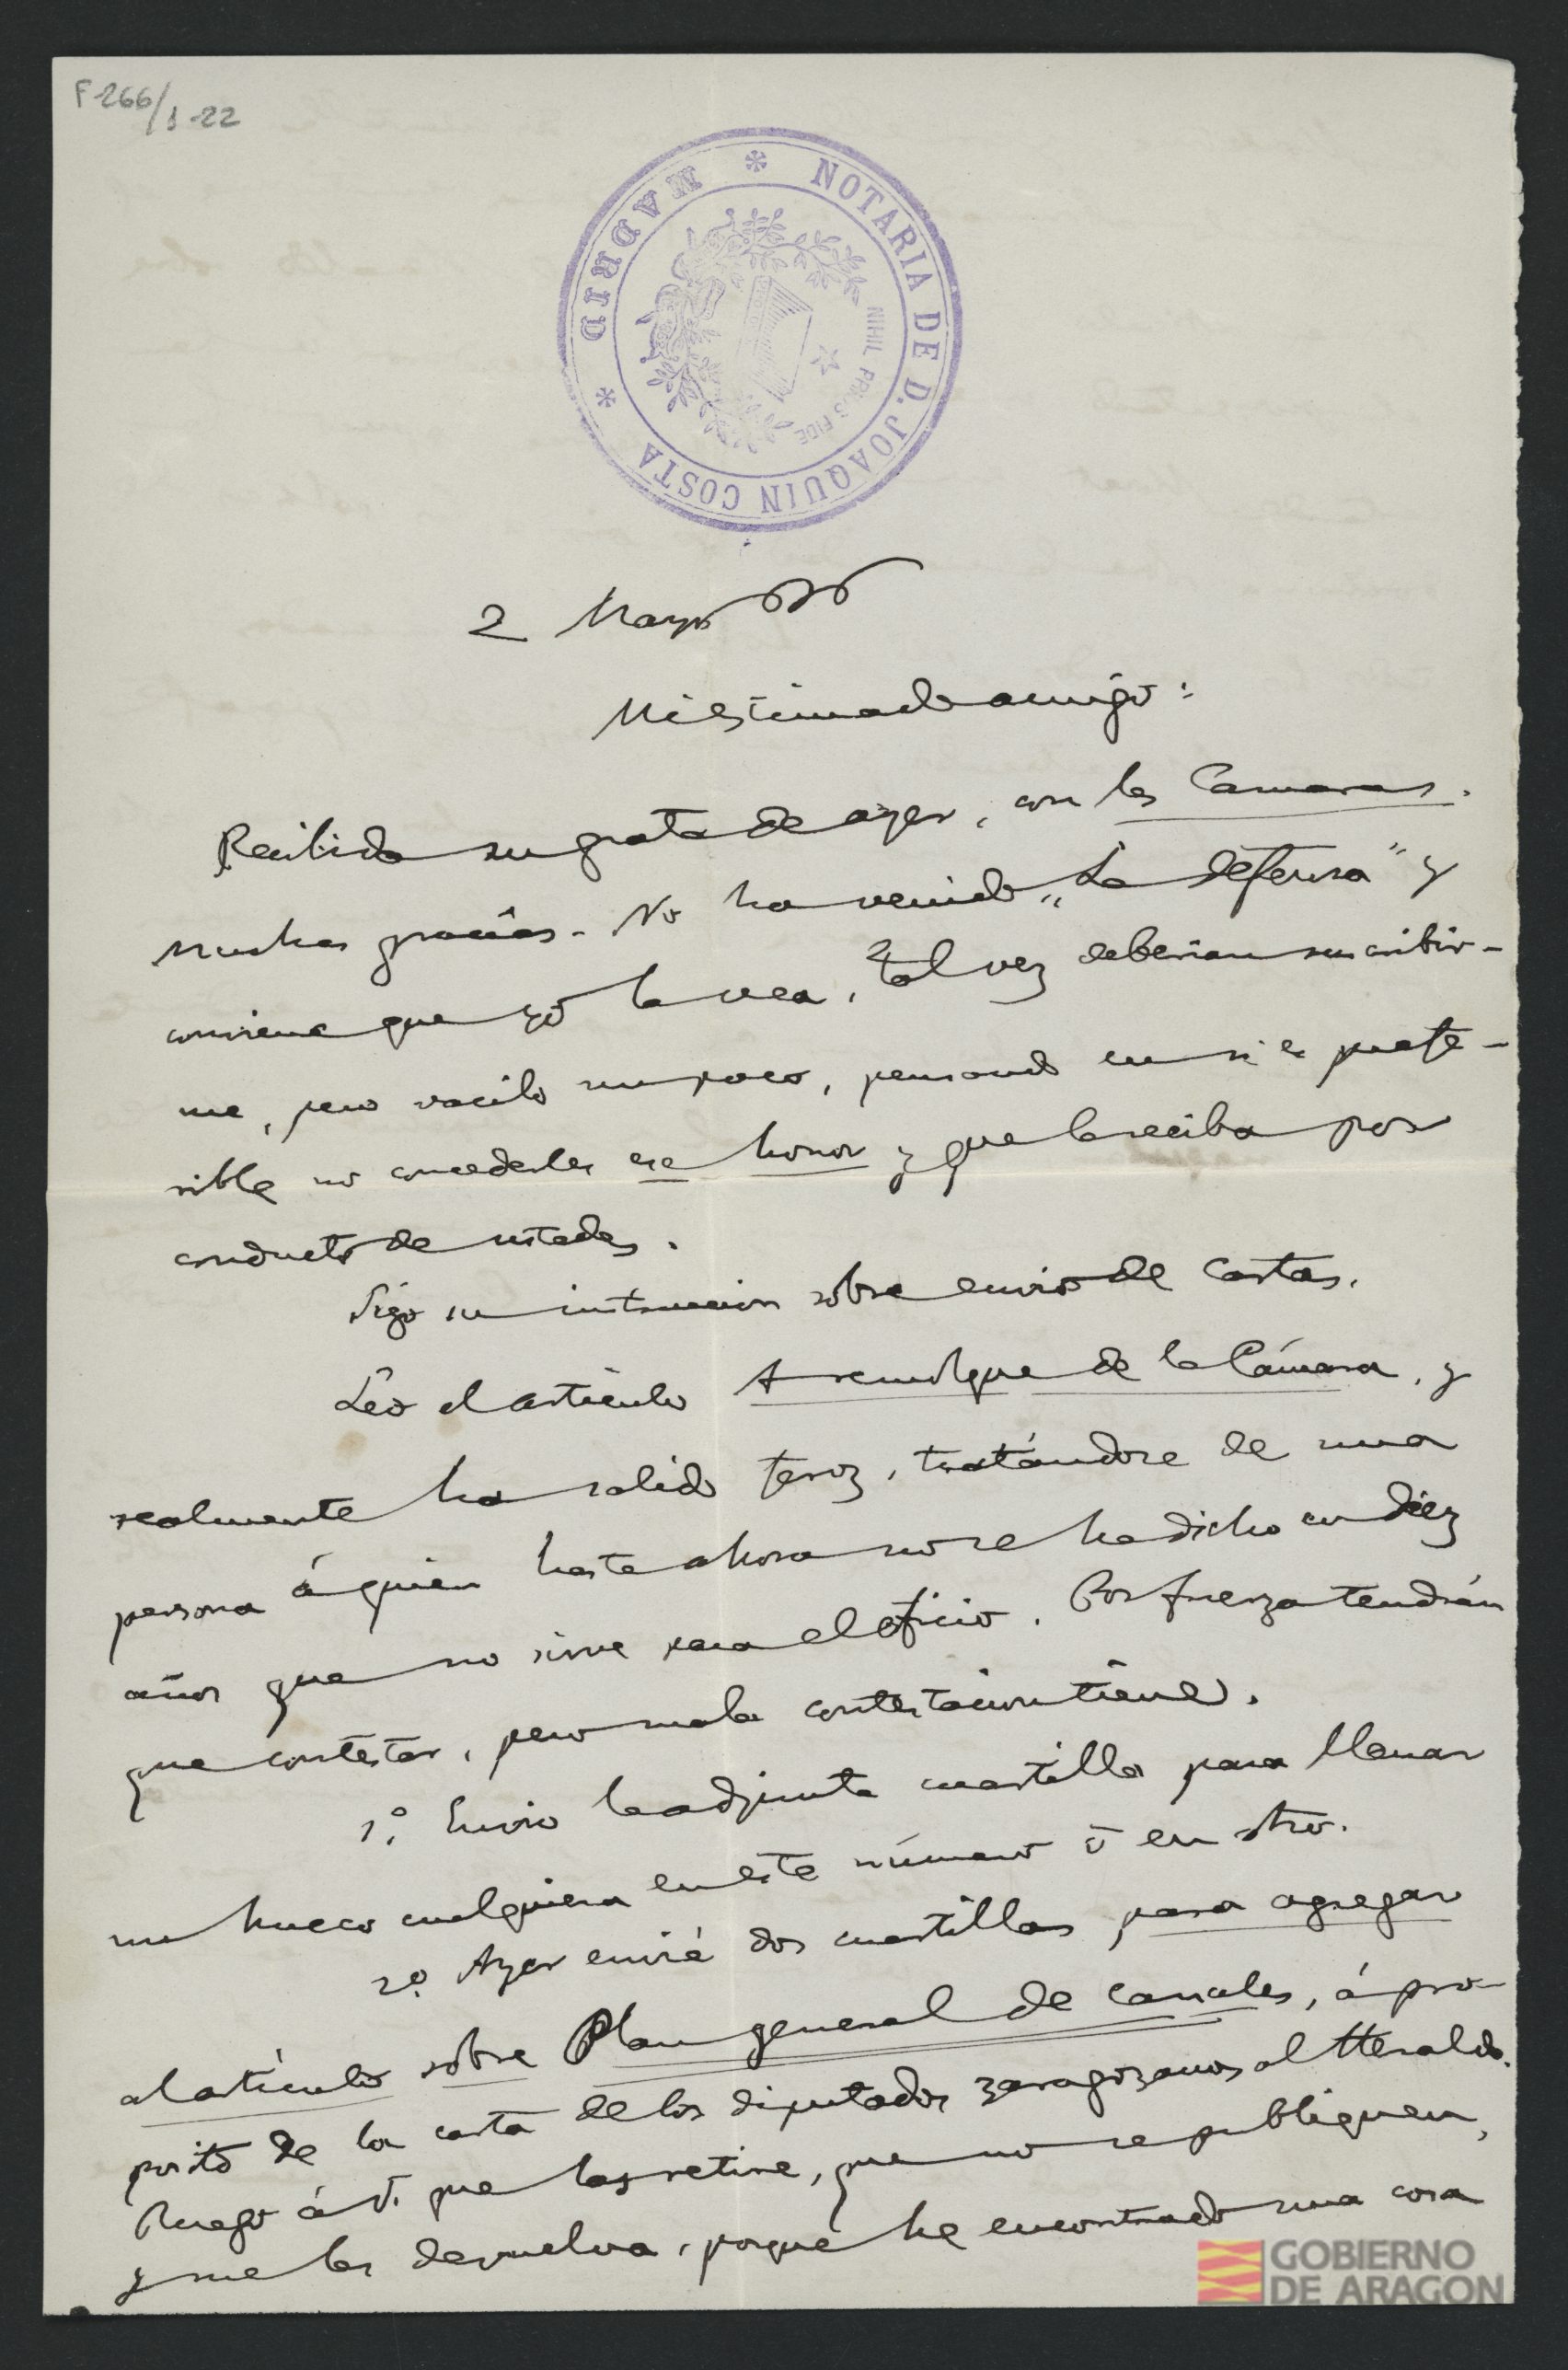 F-266/1-22
NOTARIA DE D. JOAQUIN COSTA * MADRID *
NIHIL PRIUS FIDE
2 Mayo
Mi estimado amigo:
Recibida su grata de ayer, con las Camaras.
Muchas gracias. No ha venido „La defensa" y
conviene que yo la vea. Tal vez deberian suscribir-
me, pero vacilo un poco, pensando en si es prefe-
rible no concederles ese honor y que la reciba por
conducto de ustedes.
Sigo su instruccion sobre envio de cartas.
Leo el artículo A remolque de la Cámara, y
realmente ha salido feroz, tratándose de una
persona á quien hasta ahora no se ha dicho en diez
años que no sirve para el oficio. Por fuerza tendrán
que contestar, pero mala contestacion tiene.
1º. Envio la adjunta cuartilla para llenar
un hueco cualquiera en este número ó en otro.
2º. Ayer envié dos cuartillas para agregar
al artículo sobre Plan general de canales, á pro-
posito de la carta de los diputados zaragozanos al Heraldo.
Ruego á V. que las retire, que no se publiquen,
y me las devuelva, porque he encontrado una cosa
GOBIERNO
DE ARAGON